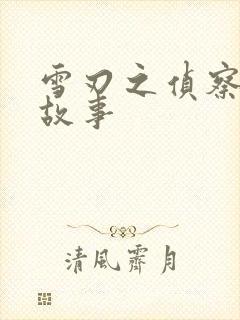 雪刃之偵察
故事
清風霽月